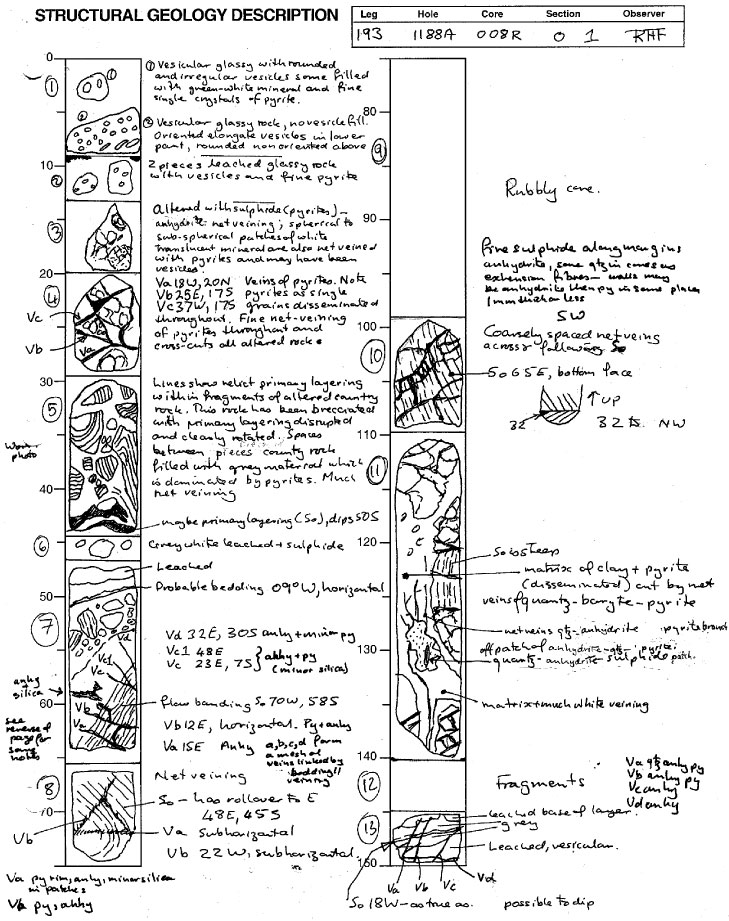 STRUCTURAL GEOLOGY DESCRIPTION
Leg Hole Core Section Observer
193 1188A 008R 0 1 RHF
0
10
20
30
40
50
60
70
① Vesicular glassy with rounded
and irregular vesicles some filled
with green-white mineral and fine
single crystals of pyrite.
② Vesicular glassy rock, no vesicle fill.
Oriented elongate vesicles in lower
part, rounded non oriented above
2 pieces leached glassy rock
with vesicles and fine pyrite
Altered with sulphide (pyrites) –
anhydrite net veining; spherical to
sub-spherical patches of white
translucent mineral are also net veined
with pyrites and may have been
vesicles.
Va 18W, 20N Veins of pyrites. Note
Vb 25E, 17S pyrites as single
Vc 37W, 17S grains disseminated
throughout. Fine net-veining
of pyrites throughout and
cross-cuts all altered rock
Vc
Vb
Va
Lines show relict primary layering
within fragments of altered country
rock. This rock has been brecciated
with primary layering disrupted
and clearly rotated. Spaces
between pieces country rock
filled with grey material which
is dominated by pyrites. Much
net veining
photo
maybe primary layering (So), dips 50S
Grey white leached + sulphide
Leached
Probable bedding 09°W, horizontal
Vd
Vd 32E, 30S anhy + minor py
Vc1 48E
Vc 23E, 7S } anhy + py
(minor silica)
Vc1
Vc
anhy
+
silica
flow banding So 70W, 58S
Vb
Vb 12E, horizontal. Py + anhy
Va
Va 15E Anhy a,b,c,d form
a mesh of
veins linked by
bedding //
veining
see
reverse of
page for
some
notes
Net veining
So – has rollover to E
48E, 45S
Va subhorizontal
Vb
Vb 22W, subhorizontal
Va py rim, anhy, minor silica
in patches
Vb py, anhy
① ② ③ ④ ⑤ ⑥ ⑦ 8
80
90
100
110
120
130
140
150
⑨ ⑩ ⑪ ⑫ ⑬
Rubbly core.
Fine sulphide along margins
anhydrite, some qtz in cores as
extension fibres – walls may
be anhydrite then py in some places
1mm thick or less
SW
Coarsely spaced net veins
across following So
So 65E, bottom face
↑ UP
32
NW
So is steep
matrix of clay + pyrite
(disseminated) cut by net
veins of quartz – baryte – pyrite
net veins qtz – anhydrite
off patch of anhydrite – qtz – pyrite.
quartz – anhydrite sulphide patch.
matrix + much white veining
Fragments
Va qtz anhy py
Vb anhy py
Vc anhy
Vd anhy
leached base of larger
grey
Leached, vesicular.
Va Vb Vc Vd
So 18W – as true as. possible to dip